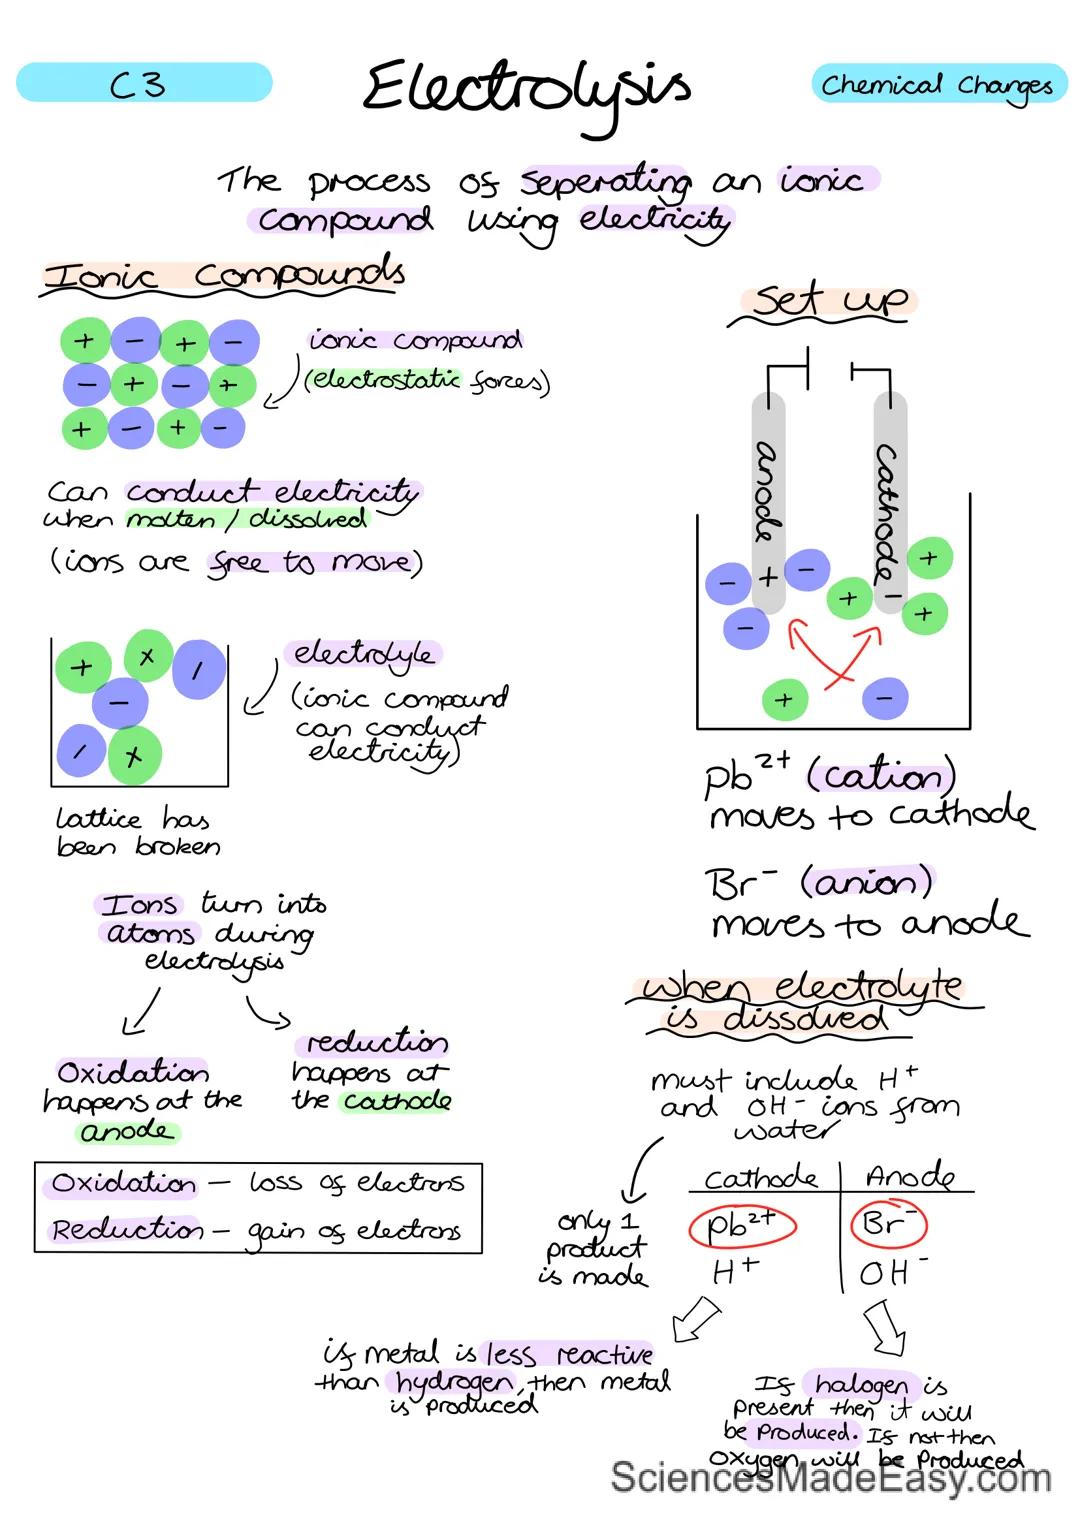 C3
Electrolysis
Chemical Changes
The process of seperating an ionic
compound using electricity
Ionic Compounds
+ - + -
- + - +
+ - + -
ionic compound
(electrostatic forces)
can conduct electricity
when molten / dissolved
(ions are free to move)
electrolyle
(ionic compound
can conduct
electricity)
lattice has
been broken
Ions turn into
atoms during
electrolysis
Oxidation
happens at the
anode
reduction
happens at
the cathode
Oxidation – loss of electrons
Reduction – gain of electrons
Set up
anode +
cathode -
- - -
+ + +
+ -
Pb²⁺ (cation)
moves to cathode
Br⁻ (anion)
moves to anode
when electrolyte
is dissolved
must include H⁺
and OH⁻ ions from
water
only 1
product
is made
Cathode Anode
Pb²⁺ Br⁻
H⁺ OH⁻
if metal is less reactive
than hydrogen, then metal
is produced
If halogen is
present then it will
be produced. If not then
oxygen will be produced
SciencesMadeEasy.com